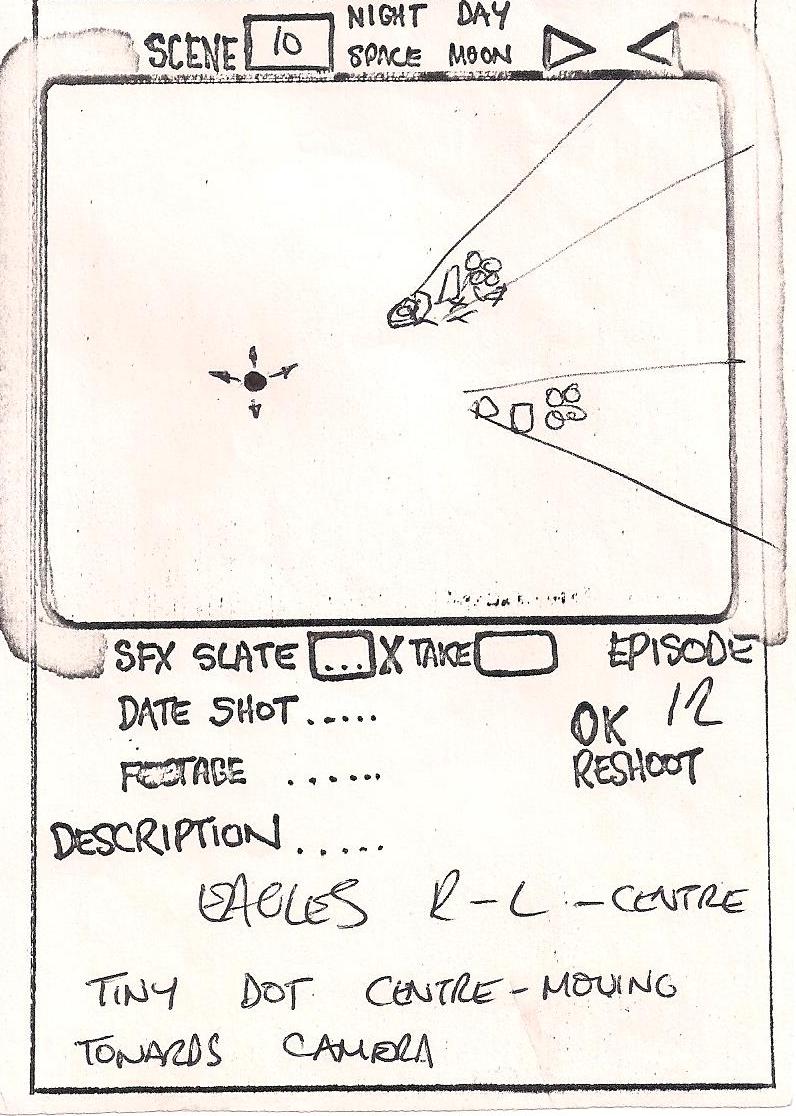 NIGHT DAY
SCENE 10 SPACE MOON
SFX SLATE ... X TAKE EPISODE
DATE SHOT ..... 12
OK
FOOTAGE ...... RESHOOT
DESCRIPTION .....
EAGLES R-L-CENTRE
TINY DOT CENTRE-MOVING
TOWARDS CAMERA